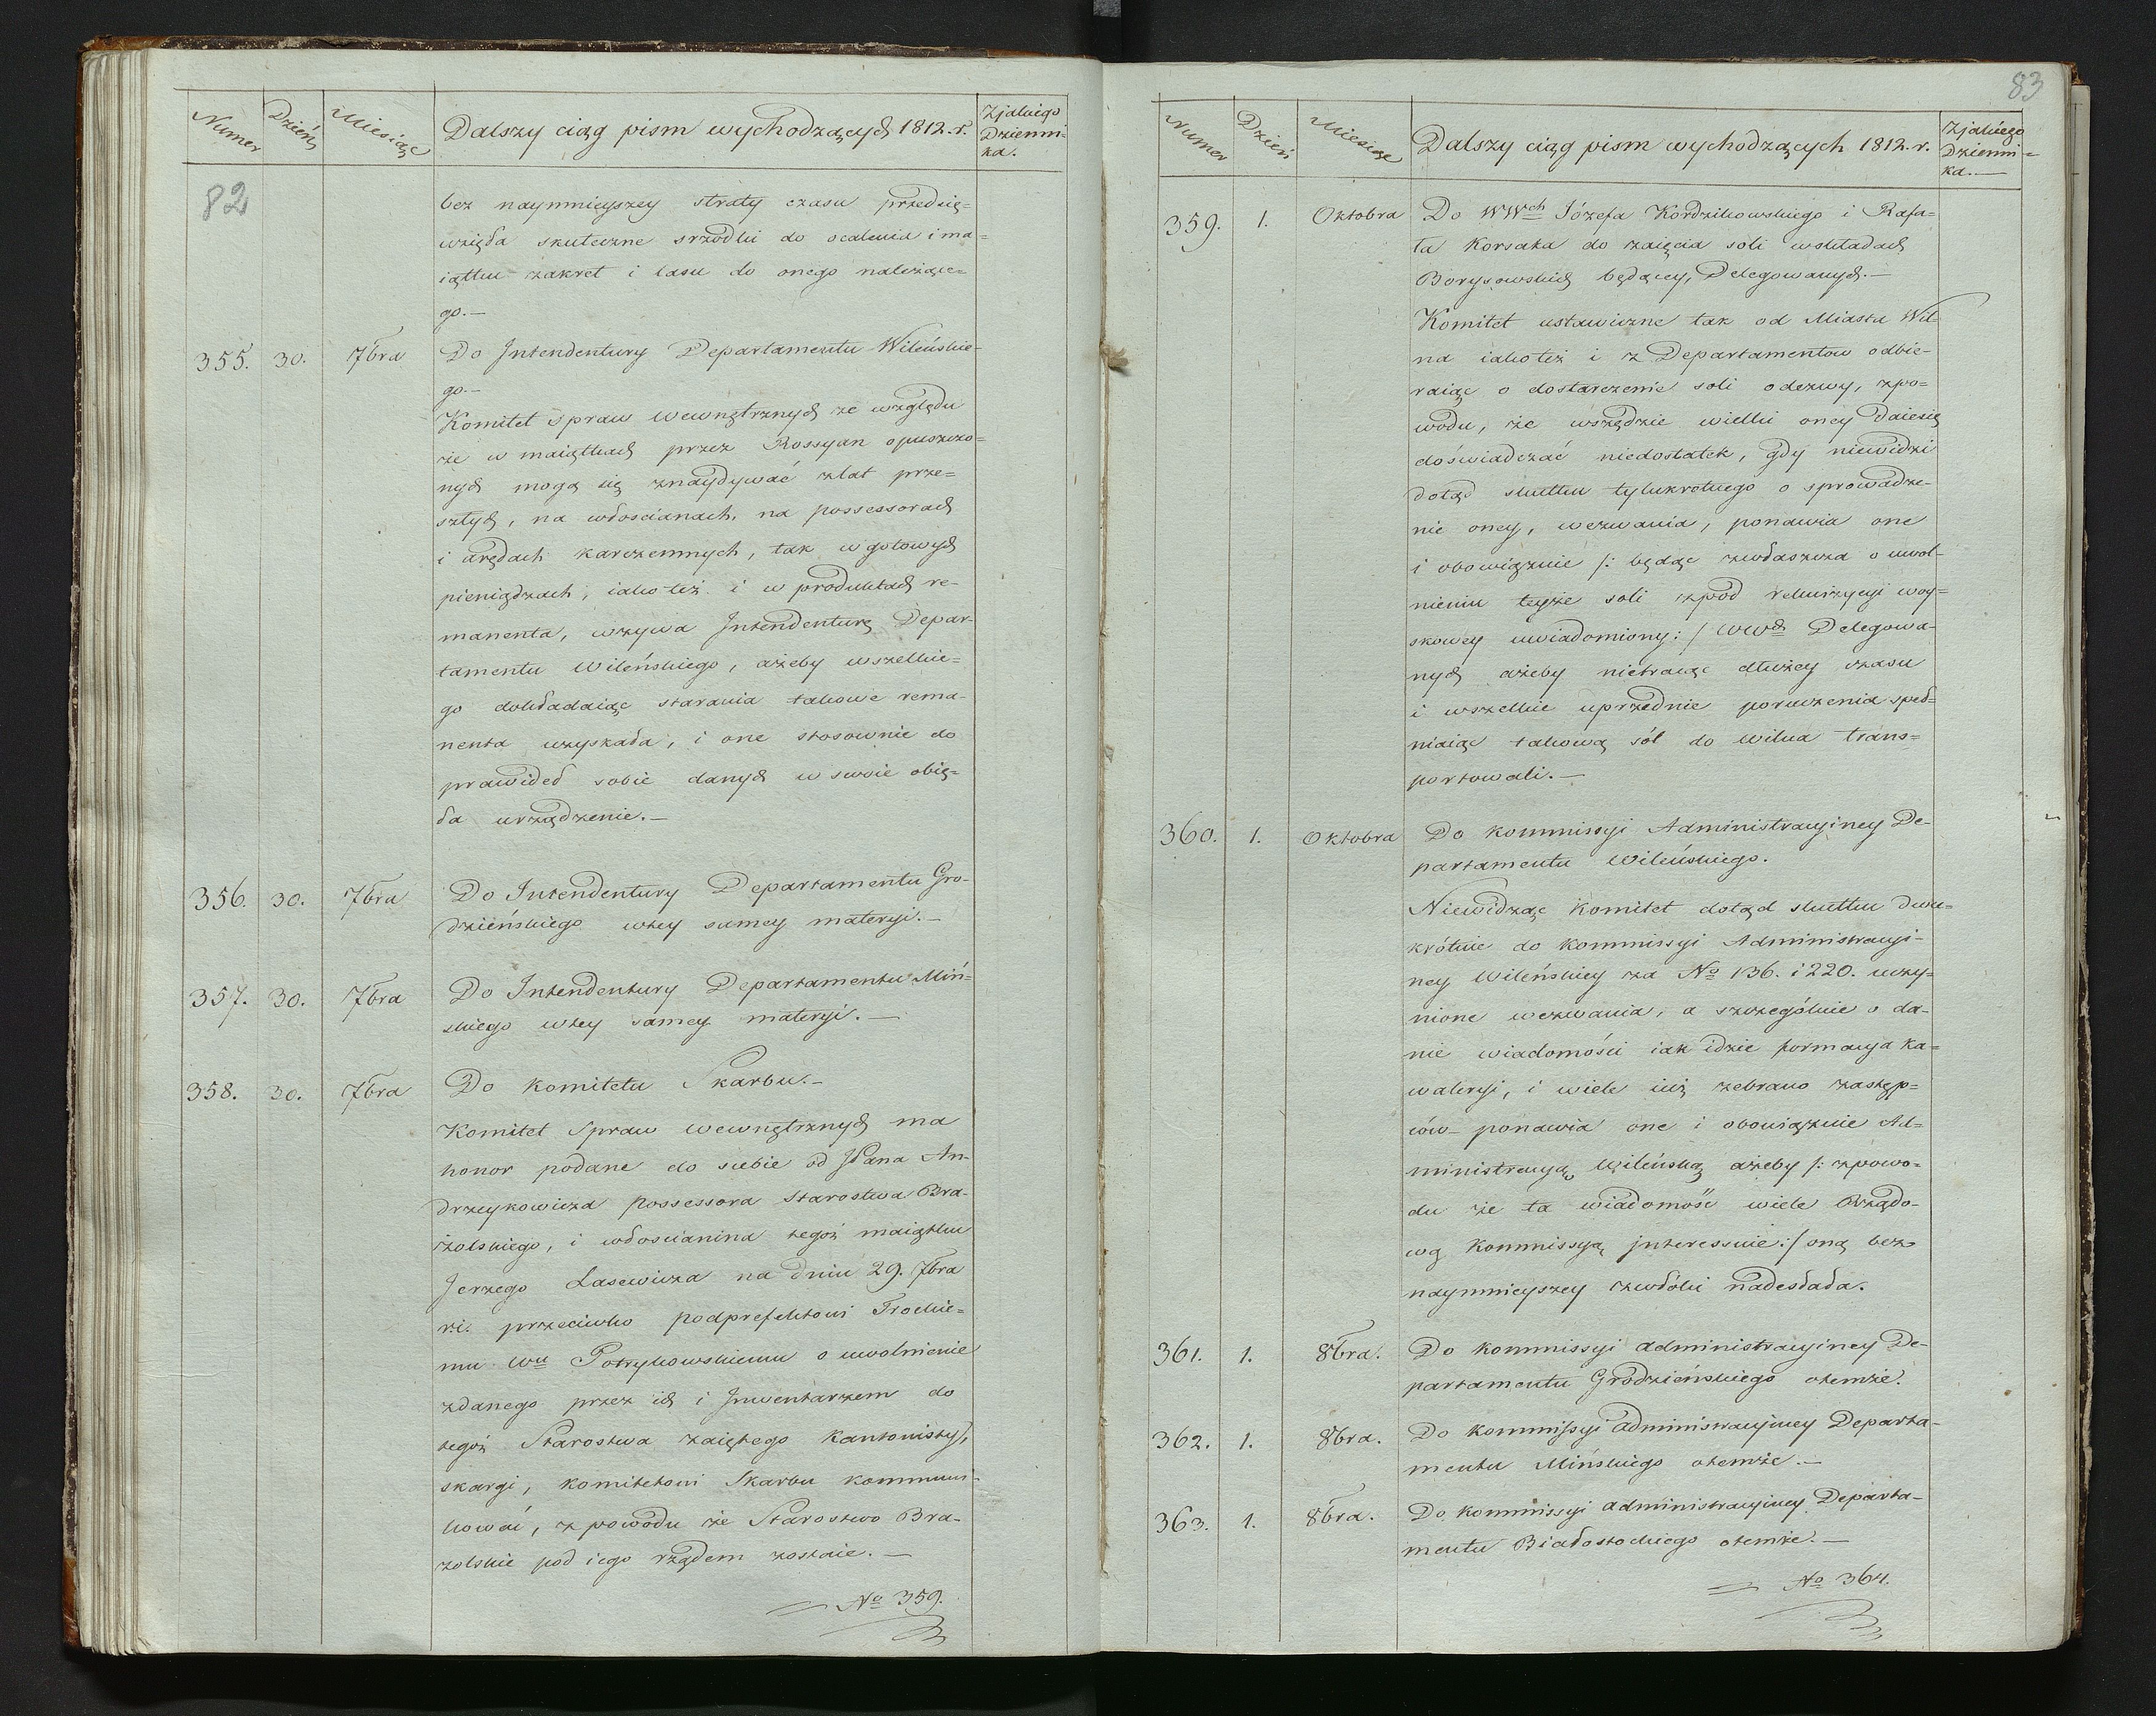 Numer Dzień Miesiąc Dalszy ciąg pism wychodzących 1812. r. Zjakiego
Dzienni-
ka.
82
bez naymnieyszey straty czasu przedsię=
wzięła skuteczne srzodki do ocalenia i ma=
iątku zakret i lasu do onego należące=
go.—
355. 30. 7bra Do Intendentury Departamentu Wileńskie-
go.—
Komitet Spraw Wewnętrznych ze względu
że w maiątkach przez Rossyan opuszczo=
nych mogą się znaydywać zlat prze=
szłych, na włoscianach, na possessorach
i arędach karczemnych, tak w gotowych
pieniądzach, iako też i w produktach re-
manenta, wzywa Intendenturę Depar-
tamentu Wileńskiego, ażeby wszelkie=
go dokładaiąc starania takowe rema-
nenta uzyskała, i one stosownie do
prawideł sobie danych w swoie obię-
ła urządzenie.—
356. 30. 7bra Do Intendentury Departamentu Gro-
dzieńskiego wtey samey materyi.—
357. 30. 7bra Do Intendentury Departamentu Miń=
skiego wtey samey materyi.—
358. 30. 7bra Do Komitetu Skarbu.—
Komitet Spraw Wewnętrznych ma
honor podane do siebie od JPana An-
drzeykowicza possessora Starostwa Bra-
żolskiego, i włoscianina tegoż maiątku
Jerzego Lasewicza na dniu 29. 7bra
r.i. przeciwko podprefektowi Trockie=
mu Wu Potrykowskiemu o uwolnienie
zdanego przez ich i Inwentarzem do
tegoż Starostwa zaiętego Kantonisty,
skargi, komitetowi Skarbu kommuni-
kować, z powodu że Starostwo Bra-
zolskie pod iego rządem zostaie.—
= No 359.
83
Numer Dzień Miesiąc Dalszy ciąg pism wychodzących 1812. r. Zjakiego
Dzienni=
ka.—
359. 1. Oktobra Do WWch Józefa Kordzikowskiego i Rafa=
ła Korsaka do zaięcia soli wskładach
Borysowskich będącey, Delegowanych.—
Komitet ustawiczne tak od Miasta Wil-
na iako też i z Departamentow odbie-
raiąc o dostarczenie soli odezwy, zpo=
wodu, że wszędzie wielki oney daiesię
doświadczać niedostatek, gdy niewidzi
dotąd skutku tylukrotnego o sprowadze-
nie oney, wezwania, ponawia one
i obowiąznie /: będąc zwłaszcza o uwol-
nieniu teyże soli zpod rekwizycyi woy=
skowey uwiadomiony :/ WWch Delegowa-
nych ażeby nietraiąc dłużey czasu
i wszelkie uprzednie poruczenia speł=
niaiąc takową sól do Wilna trans=
portowali.—
360. 1. Oktobra Do Kommissyi Administracyiney De-
partamentu Wileńskiego.
Niewidząc Komitet dotąd skutku dwu=
krótnie do Kommissyi Administracyi-
ney Wileńskiey za No 136. i 220. uczy-
nione wezwania, a szczególnie o da-
nie wiadomości iak idzie formacya ka=
waleryi, i wiele iuż zebrano zastęp=
ców ponawia one i obowiąznie Ad=
ministracyą Wileńską ażeby /: zpowo=
du że ta wiadomość wiele Rządo-
wą Kommissyą interessuie :/ oną bez
naymnieyszey zwłóki nadesłała.
361. 1. 8bra. Do Kommissyi administracyiney De-
partamentu Grodzieńskiego otemże.
362. 1. 8bra. Do Kommissyi administracyiney Departa-
mentu Mińskiego otemże.—
363. 1. 8bra. Do Kommissyi administracyiney Departa-
mentu Białostockiego otemże.—
= No 364.